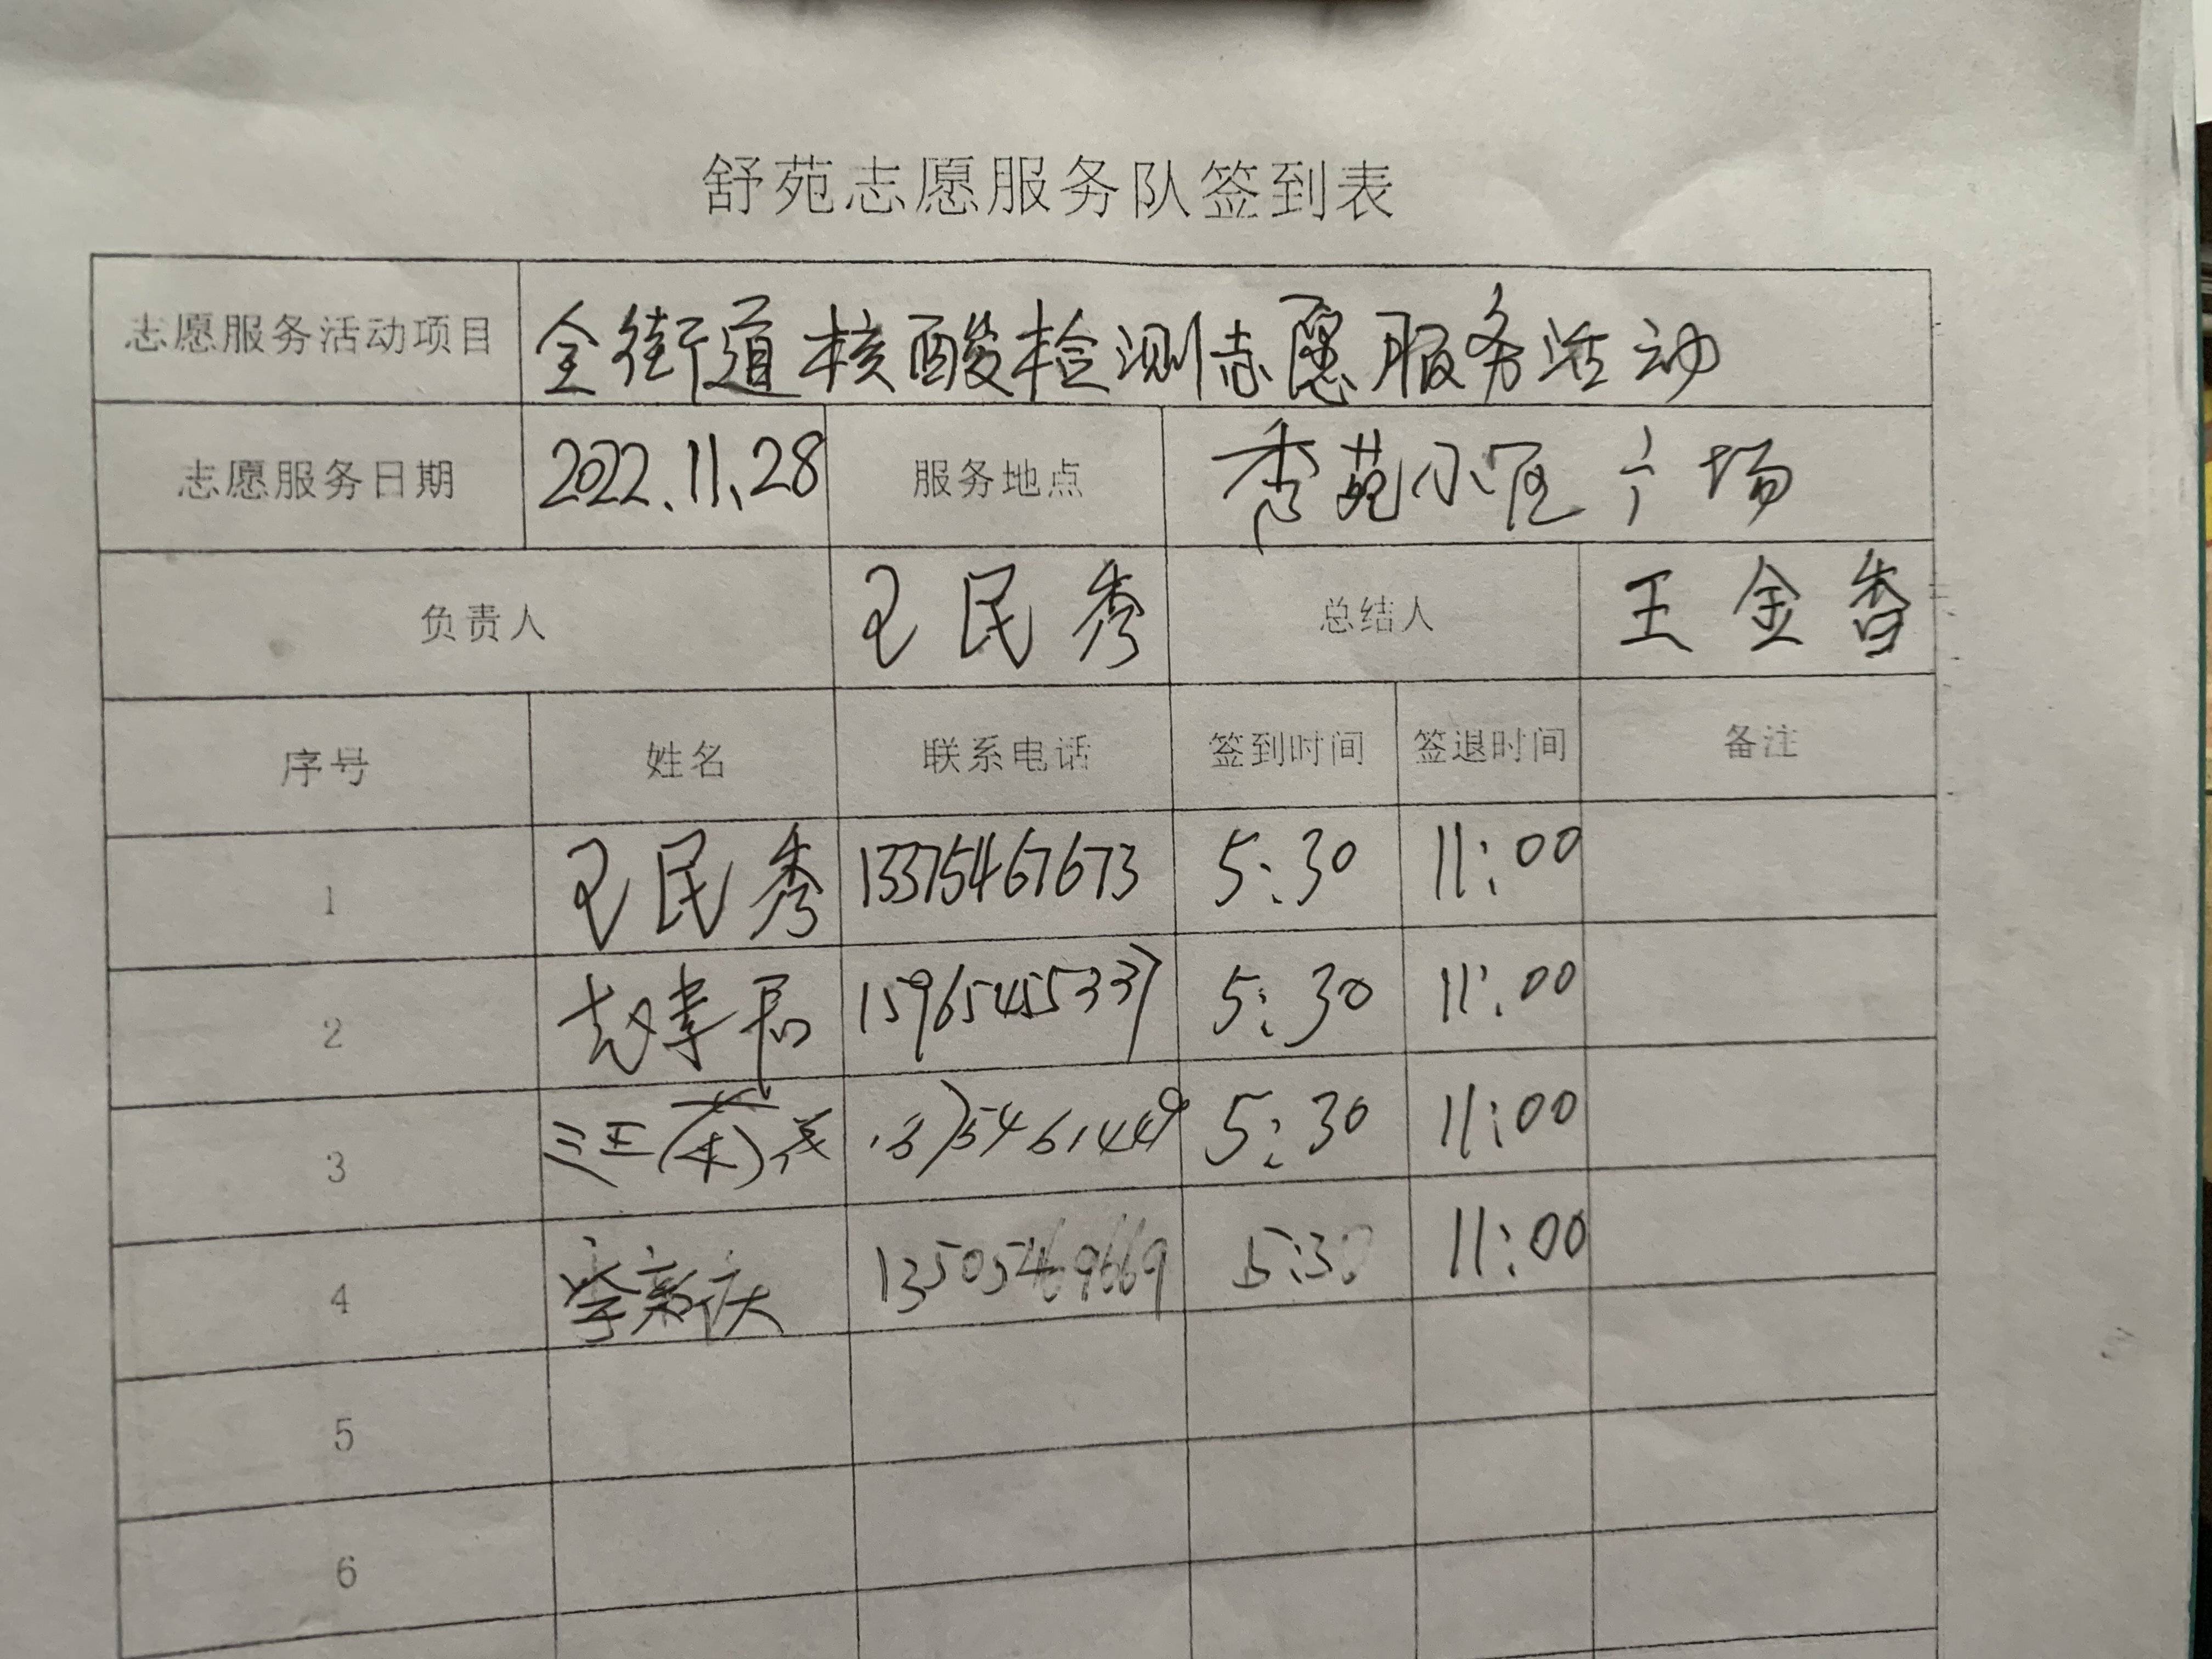 舒苑志愿服务队签到表
志愿服务活动项目 全街道核酸检测志愿服务活动
志愿服务日期 2022.11.28 服务地点 秀苑小区广场
负责人 王民秀 总结人 王金香
序号 姓名 联系电话 签到时间 签退时间 备注
1 王民秀 13375467673 5:30 11:00
2 赵孝居 15965455337 5:30 11:00
3 5:30 11:00
4 李新庆 13505469669 5:30 11:00
5
6